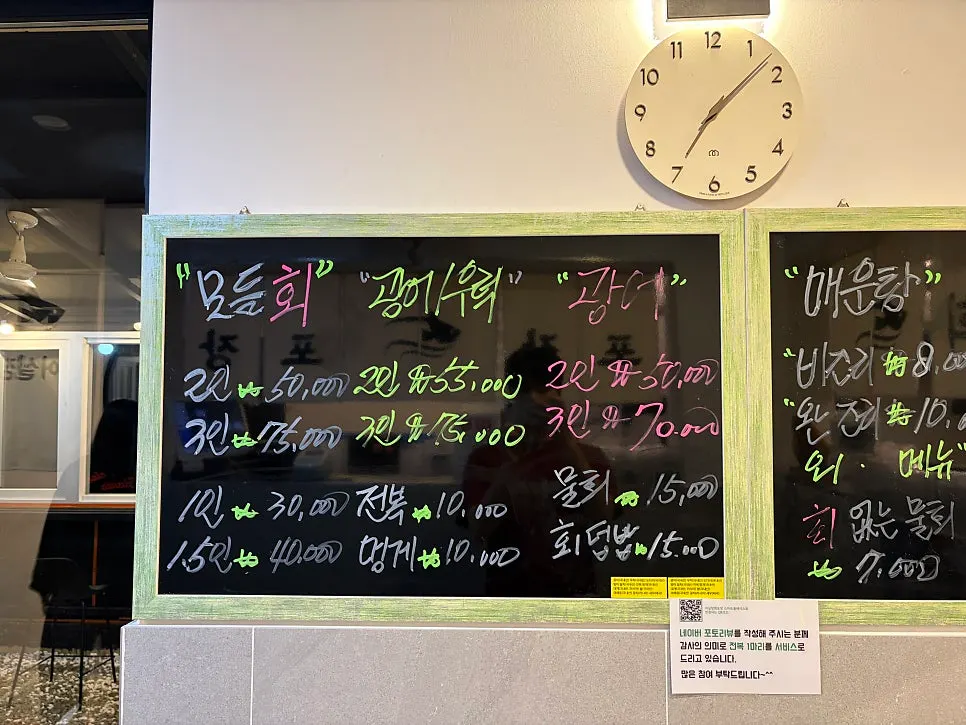 11 12 1
10 2
9 3
8 4
7 6 5
"모듬회"
2인 ₩ 50,000
3인 ₩ 75,000
1인 ₩ 30,000
1.5인 ₩ 40.000
"광어/우럭"
2인 ₩ 55.000
3인 ₩ 75.000
전복 ₩ 10.000
멍게 ₩ 10.000
"광어"
2인 ₩ 50,000
3인 ₩ 70.000
물회 ₩ 15,000
회덮밥 ₩ 15.000
"매운탕"
"바지리 ₩ 8,00
"완 전레 ₩ 10.0
외 · 메뉴"
회 없는 물회
₩ 7.000
네이버 포토리뷰를 작성해 주시는 분께
감사의 의미로 전복 1마리를 서비스로
드리고 있습니다.
많은 참여 부탁드립니다~^^